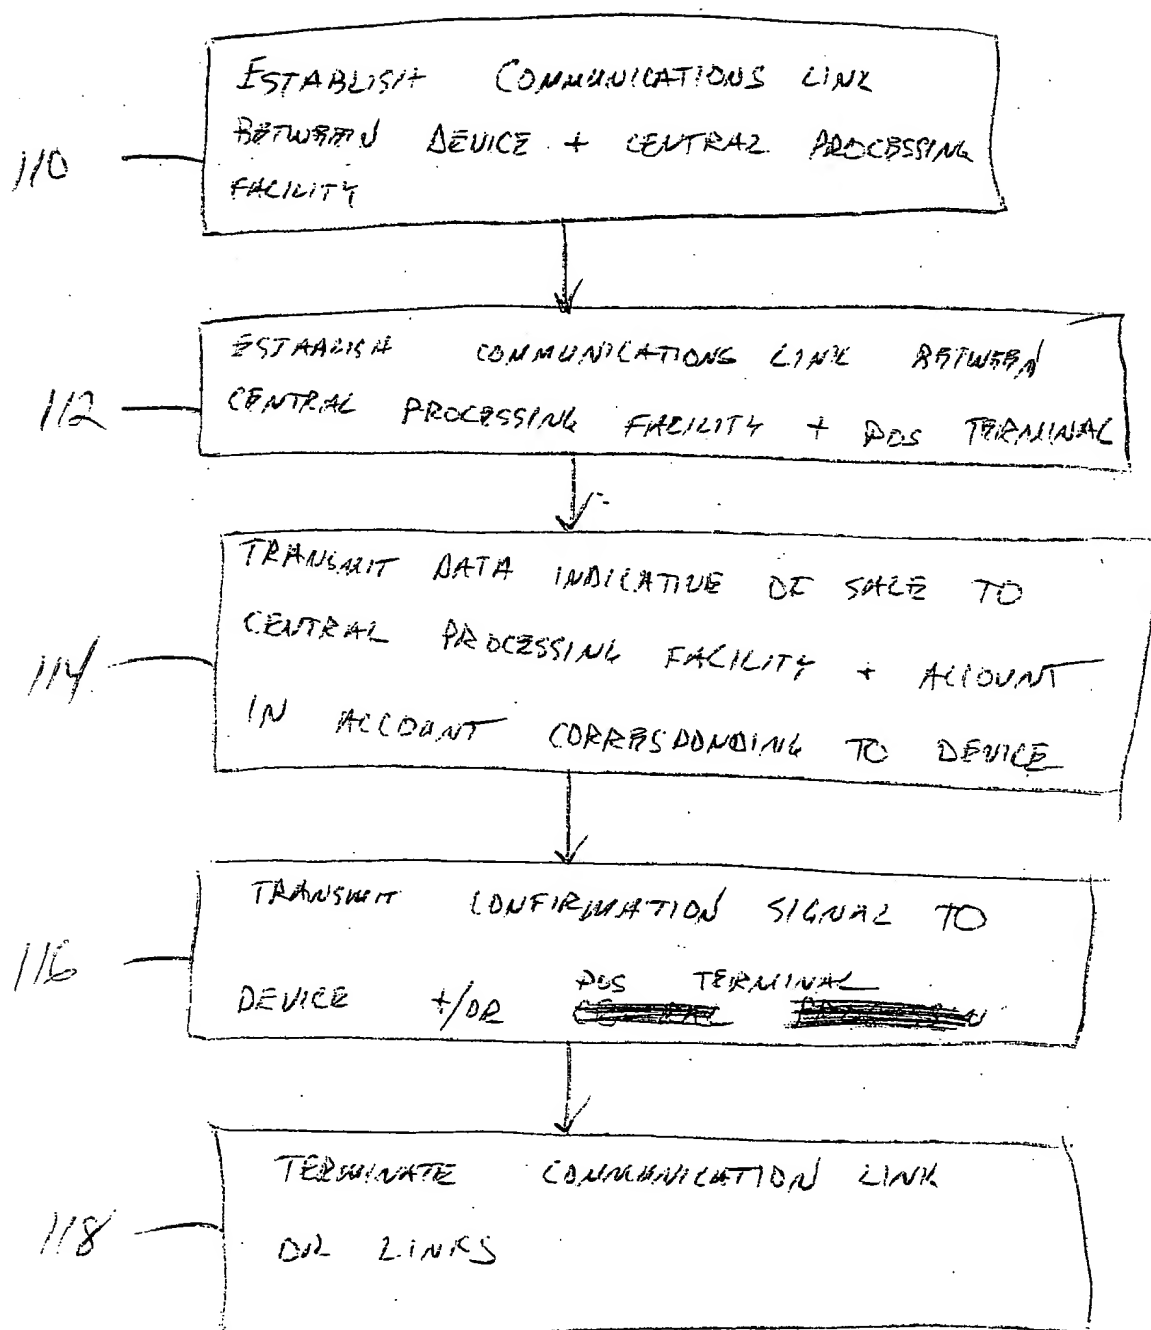 110
ESTABLISH COMMUNICATIONS LINK
BETWEEN DEVICE + CENTRAL PROCESSING
FACILITY
112
ESTABLISH COMMUNICATIONS LINK BETWEEN
CENTRAL PROCESSING FACILITY + POS TERMINAL
114
TRANSMIT DATA INDICATIVE OF SALE TO
CENTRAL PROCESSING FACILITY + ACCOUNT
IN ACCOUNT CORRESPONDING TO DEVICE
116
TRANSMIT CONFIRMATION SIGNAL TO
DEVICE +/OR POS TERMINAL
118
TERMINATE COMMUNICATION LINK
OR LINKS